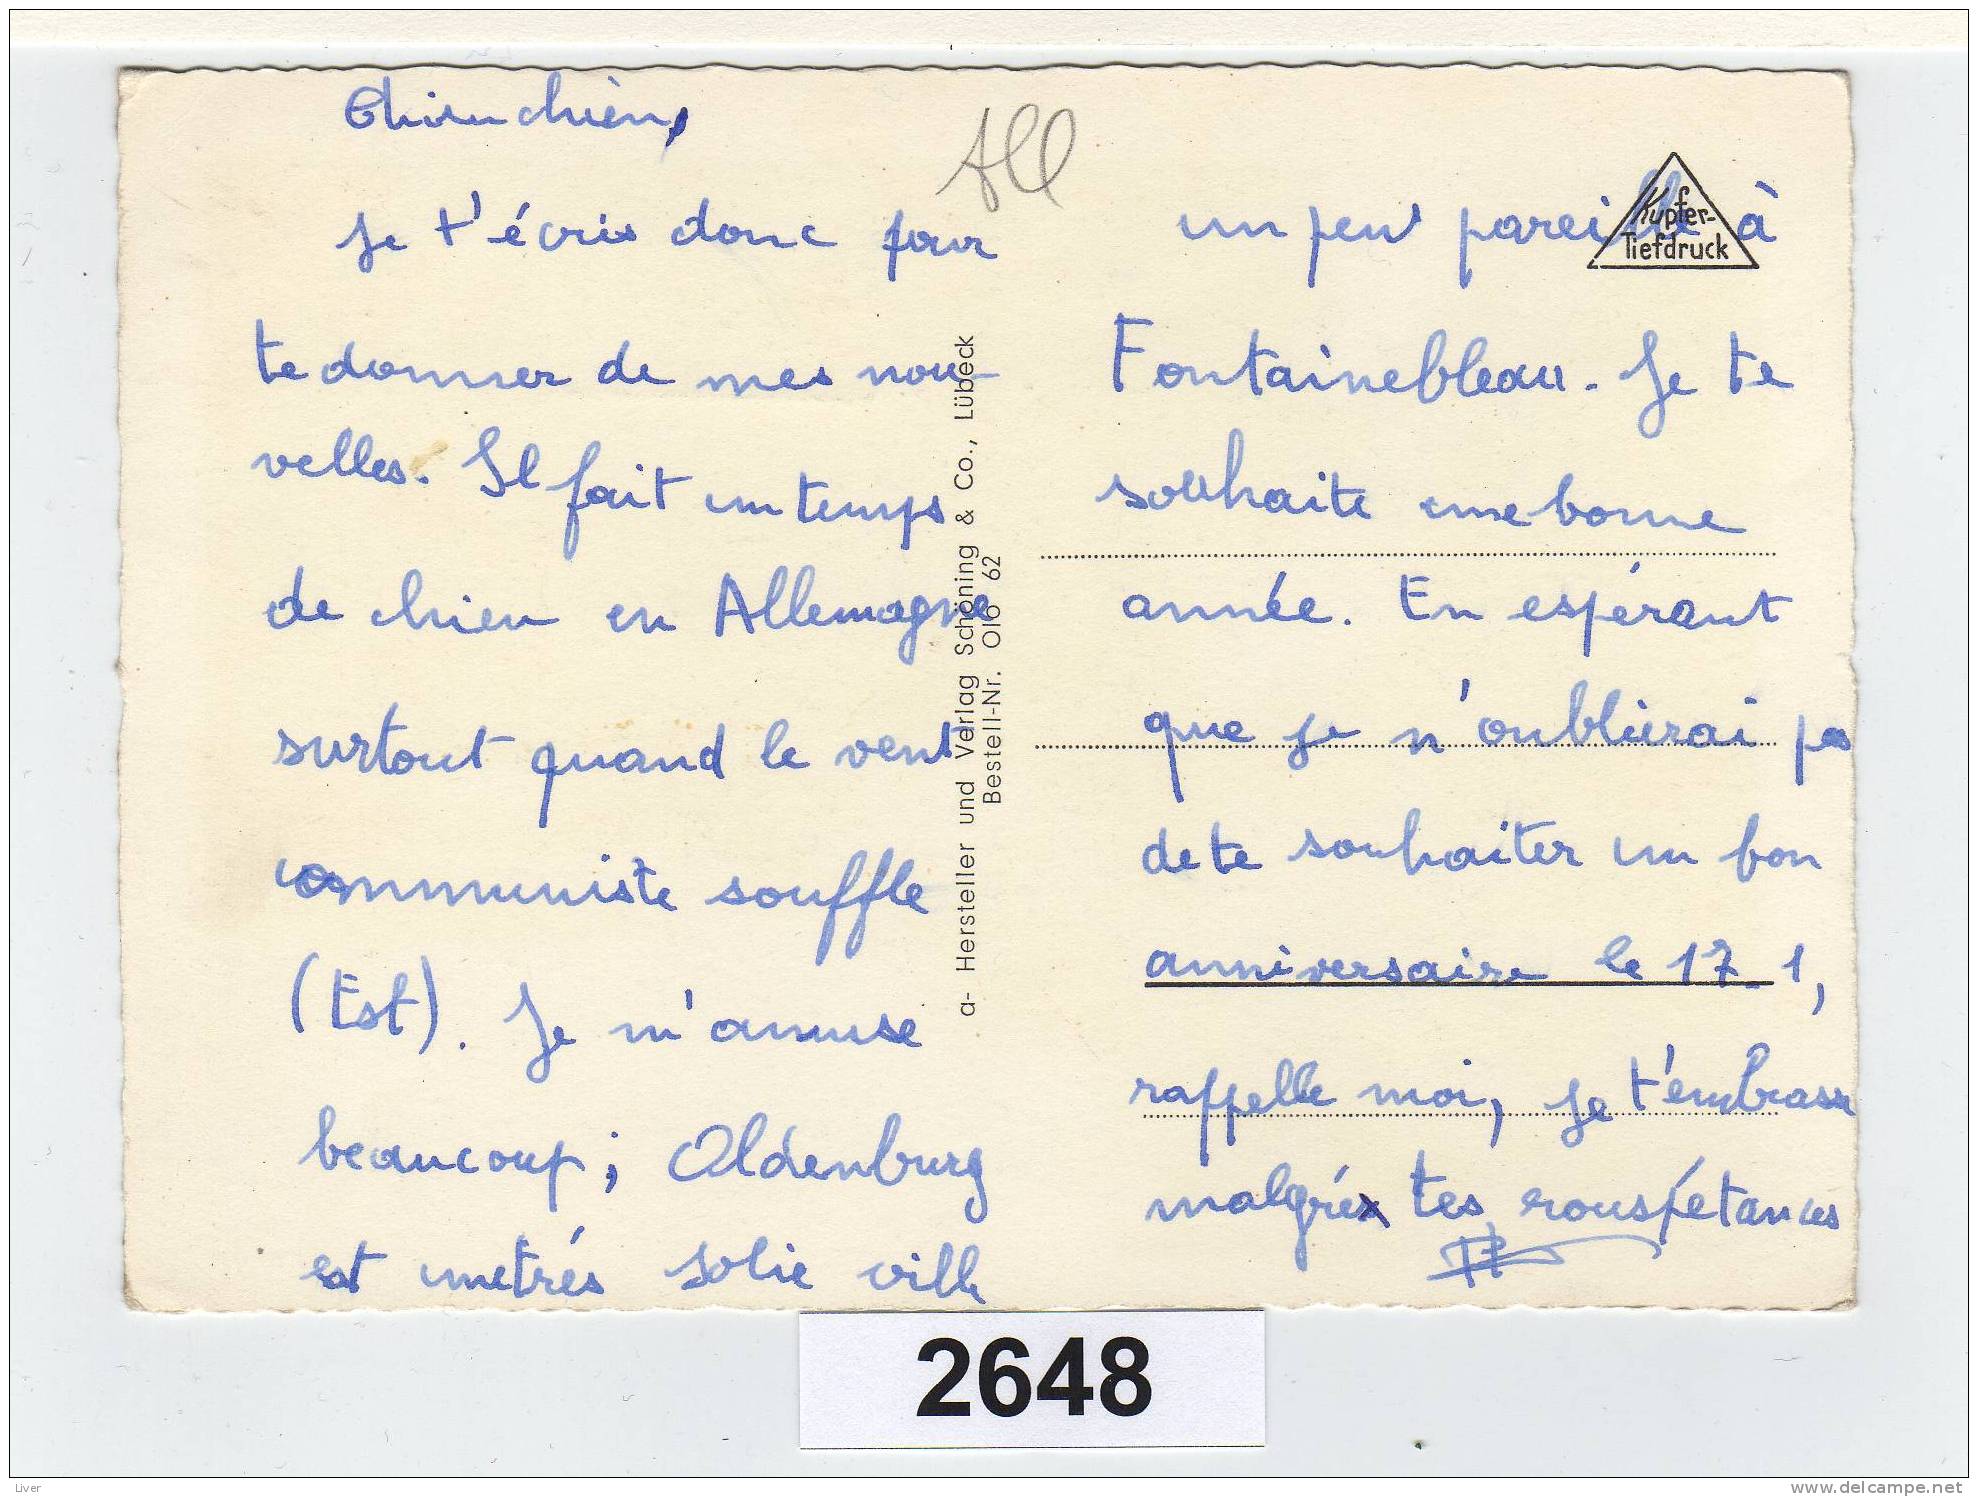 je t'écris donc pour
te donner de mes nou-
velles. Il fait un temps
de chien en Allemagne
surtout quand le vent
communiste souffle
(Est). Je m'amuse
beaucoup; Oldenburg
est une très jolie ville
All
a- Hersteller und Verlag Schöning & Co., Lübeck
Bestell-Nr. Olo 62
Kupfer-
Tiefdruck
un peu pareille à
Fontainebleau. Je te
souhaite une bonne
année. En espérant
que je n'oublierai pas
de te souhaiter un bon
anniversaire le 17-1,
rappelle moi, je t'embrasse
malgré tes rouspétances
2648
Liver
www.delcampe.net